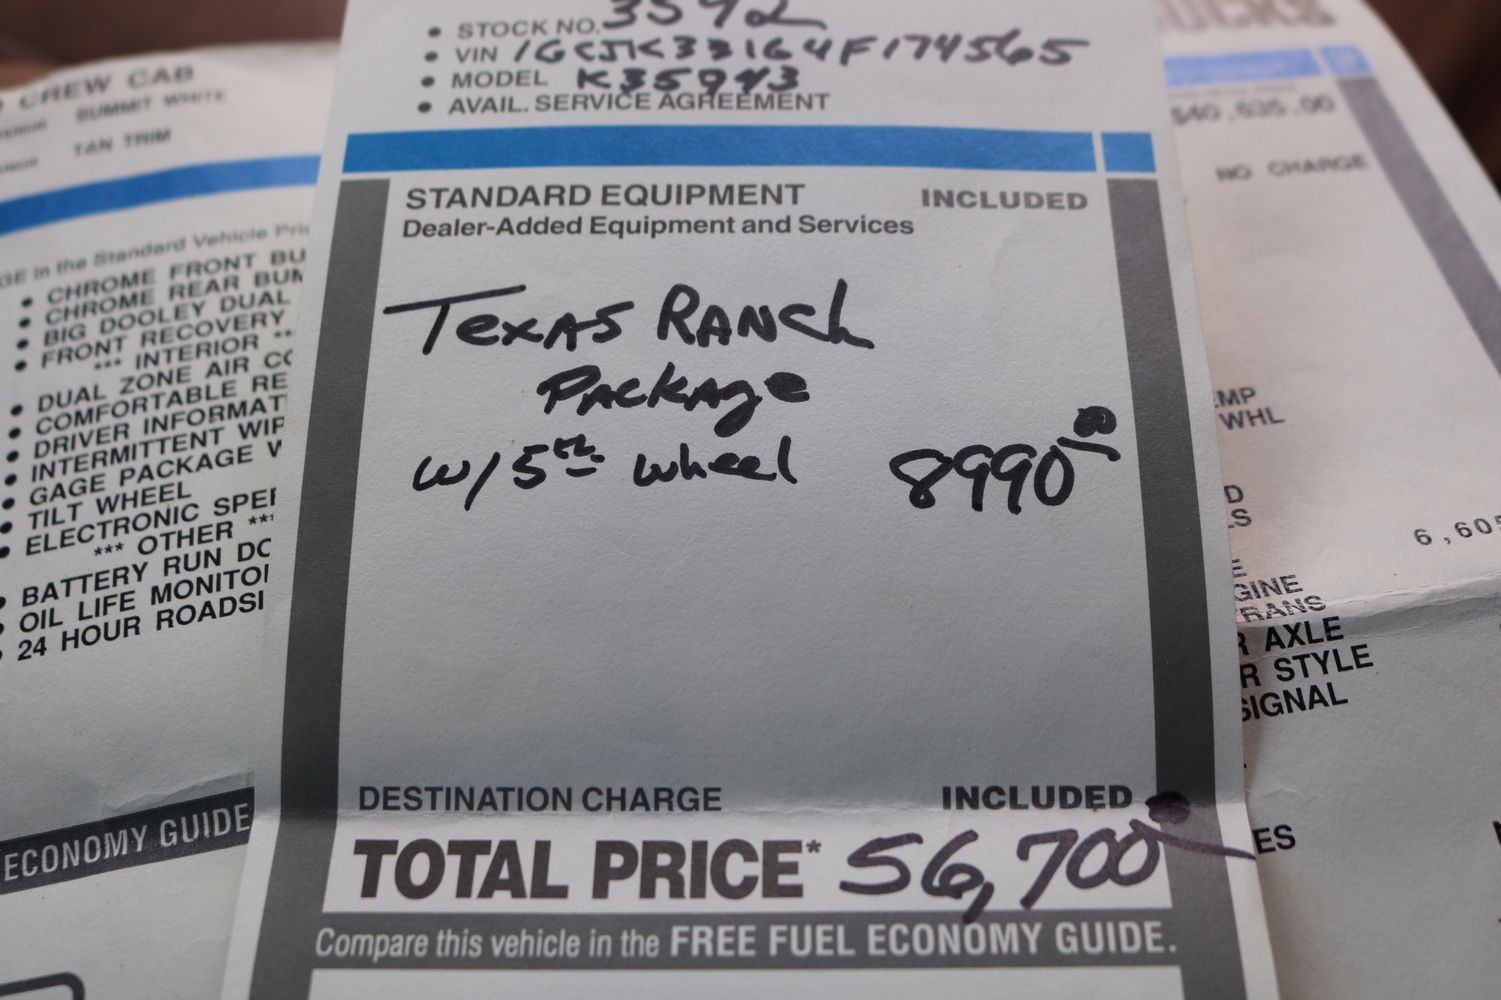 • STOCK NO. 3592
• VIN 1GCJK33164F174565
• MODEL K35943
• AVAIL. SERVICE AGREEMENT
STANDARD EQUIPMENT INCLUDED
Dealer-Added Equipment and Services
TEXAS RANCh
PACKAge
w/5th wheel 8990 00
DESTINATION CHARGE INCLUDED
TOTAL PRICE* 56,700 00
Compare this vehicle in the FREE FUEL ECONOMY GUIDE.
CREW CAB
SUMMIT WHITE
TAN TRIM
GE in the Standard Vehicle Pric
• CHROME FRONT BU
• CHROME REAR BUM
• BIG DOOLEY DUAL
• FRONT RECOVERY
*** INTERIOR **
• DUAL ZONE AIR CO
• COMFORTABLE RE
• DRIVER INFORMAT
• INTERMITTENT WIP
• GAGE PACKAGE W
• TILT WHEEL
• ELECTRONIC SPEE
*** OTHER ***
• BATTERY RUN DO
• OIL LIFE MONITOR
• 24 HOUR ROADSI
ECONOMY GUIDE
$40,635.00
NO CHARGE
EMP
WHL
D
LS
6,605
E
GINE
TRANS
R AXLE
R STYLE
SIGNAL
ES